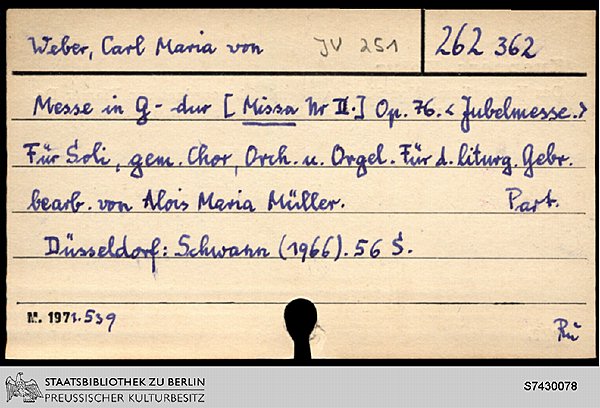 Weber, Carl Maria von JV 251 262 362
Messe in G-dur [Missa Nr II.] Op. 76. <Jubelmesse.>
Für Soli, gem. Chor, Orch. u. Orgel. Für d. liturg. Gebr.
bearb. von Alois Maria Müller. Part.
Düsseldorf: Schwann (1966). 56 S.
M. 1971.539 Rü
STAATSBIBLIOTHEK ZU BERLIN
PREUSSISCHER KULTURBESITZ
S7430078